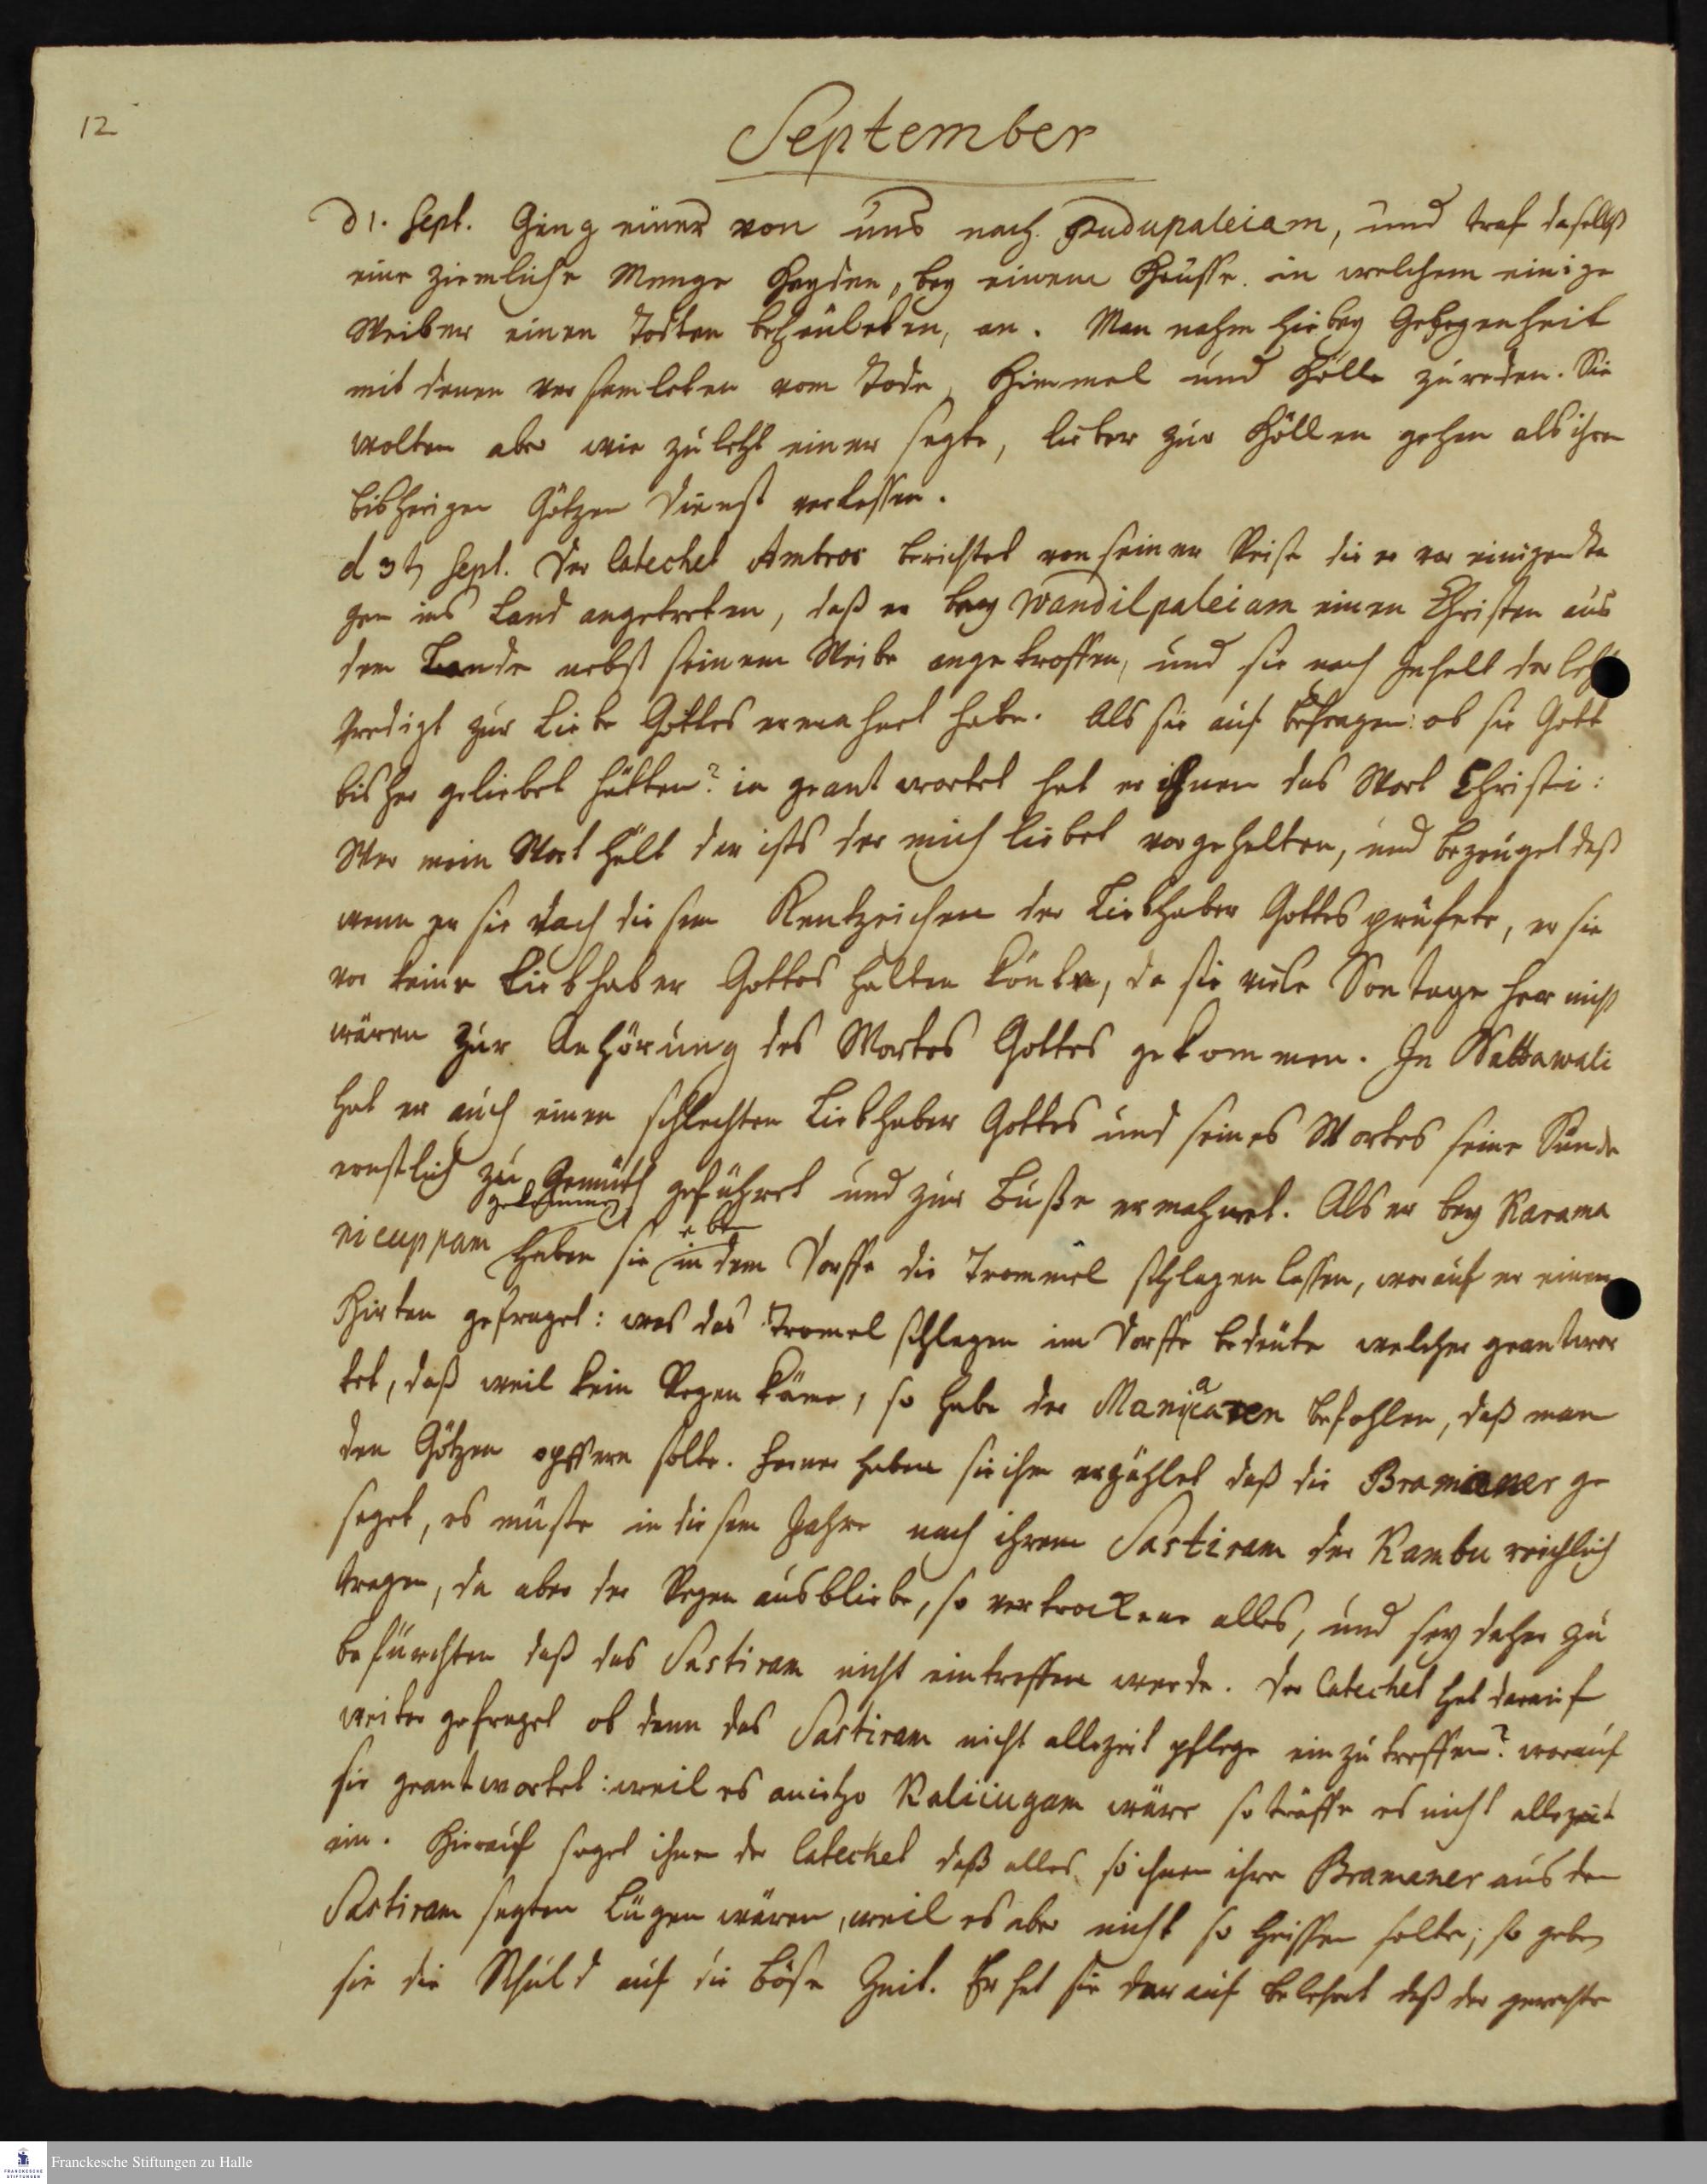 12
September
d 1. Sept. Ging einer von uns nach Pudupaleiam, und traf daselbst
eine ziemliche Menge Heyden, bey einem Hausse in welchem einige
Weiber einen Todten beheuleten, an. Man nahm hiebey Gelegenheit
mit denen versamleten vom Tode, Himmel und Hölle zureden. Sie
wolten aber wie zuletzt einer sagte, lieber zur Höllen gehen als ihren
bisherigen Götzen Dienst verlassen.
d 3t Sept. Der Catechet Ambros berichtet von seiner Reise die er vor einigen Ta
gen ins Land angetreten, daß er bey Wandilpaleiam einen Christen aus
dem Lande nebst seinem Weibe angetroffen, und sie nach Inhalt der
Predigt zur Liebe Gottes ermahnet habe. Als sie auf befragen: ob sie Gott
bisher geliebet hätten? ia geantwortet hat er ihnen das Wort Christi:
Wer mein Wort hält der ists der mich liebet vorgehalten, und bezeuget daß
wenn er sie nach diesem Kentzeichen der Liebhaber Gottes prüfete, er sie
vor keine Liebhaber Gottes halten könte, da sie viele Sontage her nicht
wären zur Anhörung des Wortes Gottes gekommen. In Sattawali
hat er auch einen schlechten Liebhaber Gottes und seines Wortes seine Sünde
ernstlich zu Gemüth geführet und zur Buße ermahnet. Als er bey Karama
nicuppam gekommen haben sie eben in dem Dorffe die Trommel schlagen lassen, worauf er einen
Hirten gefraget: was das Tromel schlagen im Dorffe bedeute welcher geantwor
tet, daß weil kein Regen käme, so habe der Maniacaren befohlen, daß man
den Götzen opffern solte. Ferner haben sie ihm erzählet daß die Bramaner ge
saget, es müste in diesem Jahre nach ihrem Sastiram der Kambu reichlich
tragen, da aber der Regen ausbliebe, so vertrockene alles, und sey daher zu
befürchten daß das Sastiram nicht eintreffen werde. Der Catechet hat darauf
weiter gefraget ob denn das Sastiram nicht allezeit pflege einzutreffen? worauf
sie geantwortet: weil es anietzo Kaliiugam wäre so träffe es nicht allezeit
ein. Hierauf saget ihnen der Catechet daß alles so ihnen ihre Bramaner aus dem
Sastiram sagten Lügen wären, weil es aber nicht so heissen solte; so geben
sie die Schuld auf die böse Zeit. Er hat sie darauf belehret daß der gerechte
Franckesche Stiftungen zu Halle